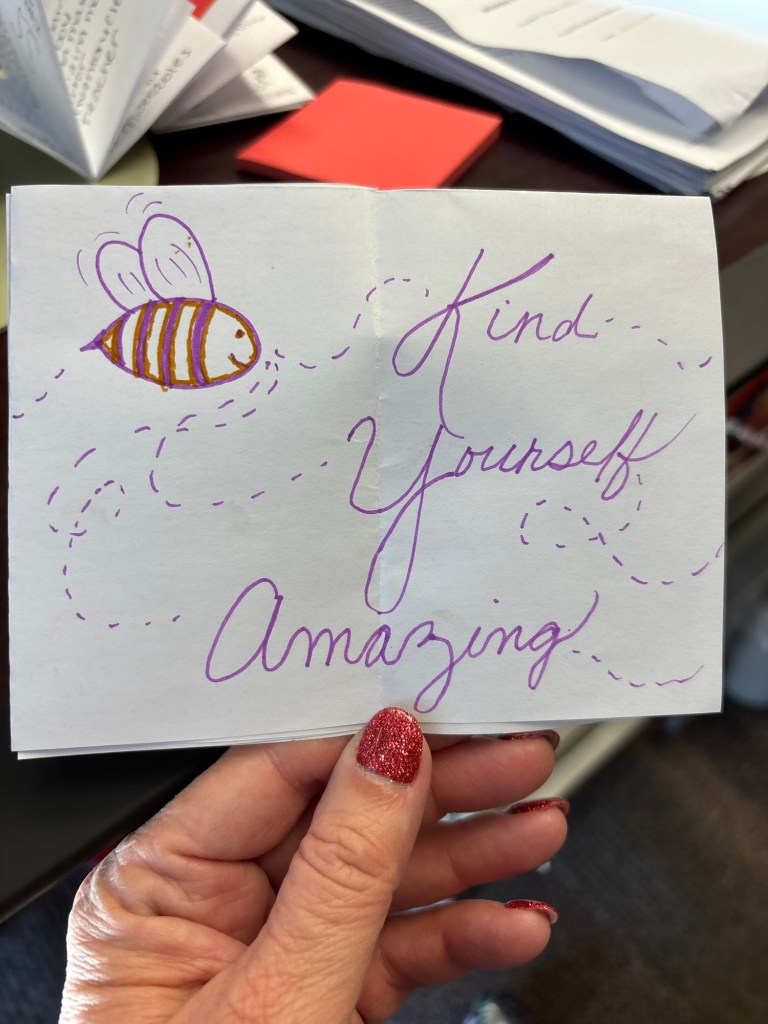 Kind
Yourself
Amazing